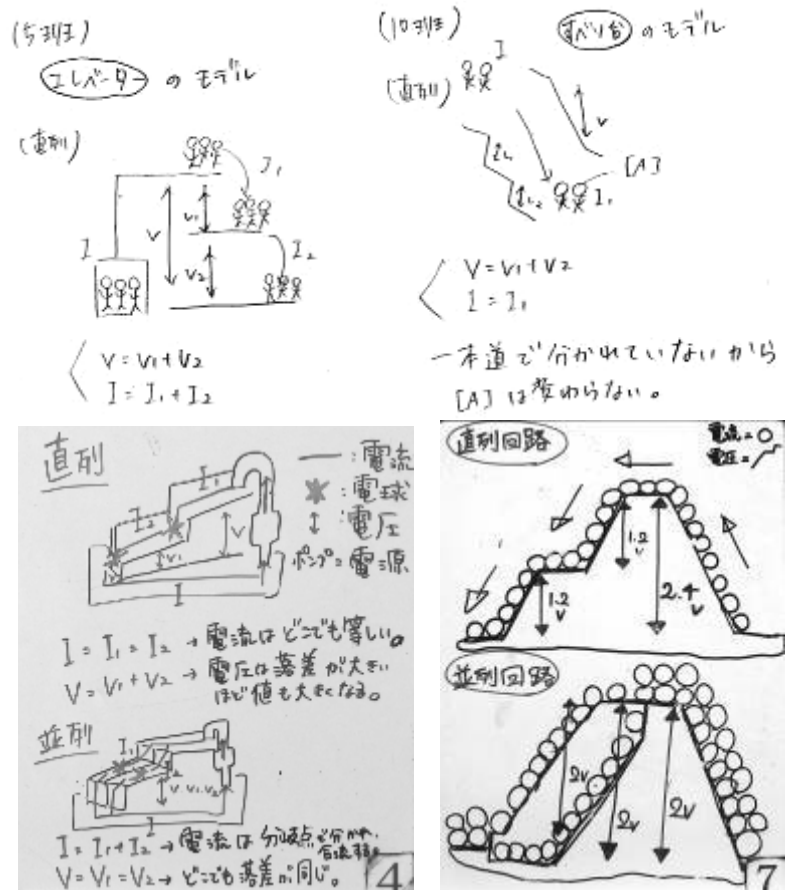 (5班)
エレベーター のモデル
(直列)
I
I₁
V
V₁
V₂
I₂
V=V₁+V₂
I=I₁+I₂
(10班)
すべり台 のモデル
(直列)
I
V
[A]
I₁
V=V₁+V₂
I=I₁
一本道で分かれていないから
[A]は変わらない。
直列
―:電流
:電球
↕:電圧
ポンプ=電源
I₁
I₂
V
V₁
I
I=I₁=I₂→電流はどこでも等しい。
V=V₁+V₂→電圧は落差が大きい
ほど値も大きくなる。
並列
I₁
I₂
V V₁ V₂
I
I=I₁+I₂→電流は分岐点で分かれ、
合流する。
V=V₁=V₂→どこでも落差が同じ。
4
直列回路
電流=○
電圧=
1.2V
1.2V
2.4V
並列回路
2V
2V
2V
7